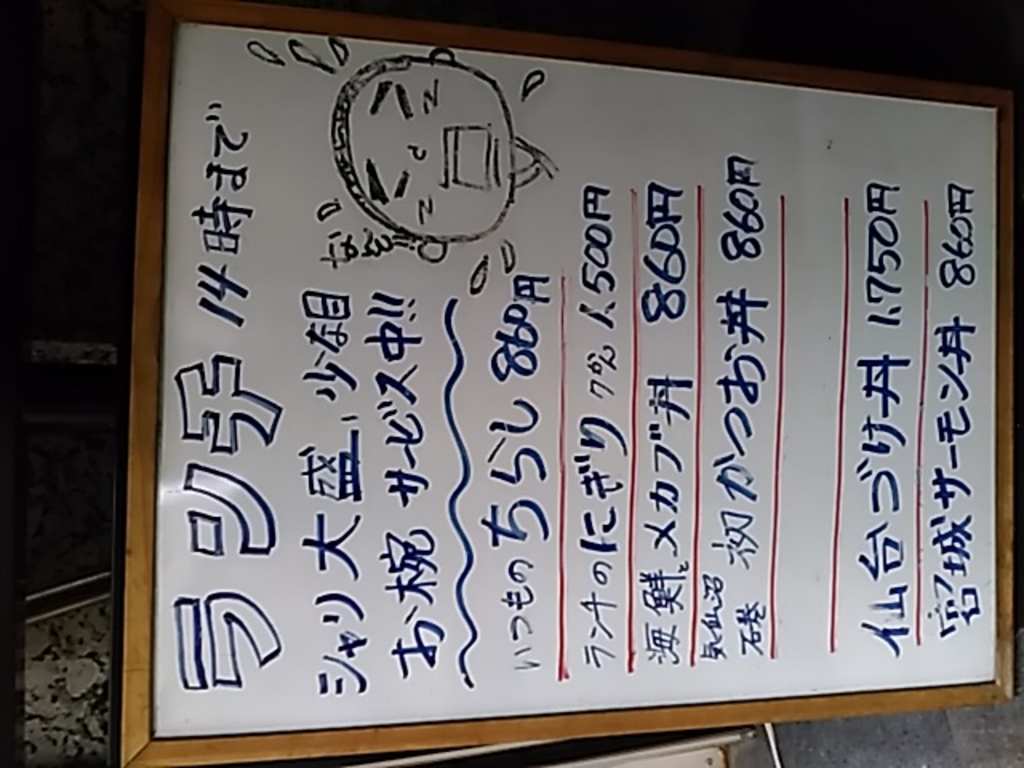 ランチ 14時まで
シャリ大盛、少な目
お椀 サービス中!!
いつものちらし 860円
ランチのにぎり 7かん 1.500円
海鮮とメカブ丼 860円
気仙沼
石巻 初かつお丼 860円
仙台づけ丼 1.750円
宮城サーモン丼 860円